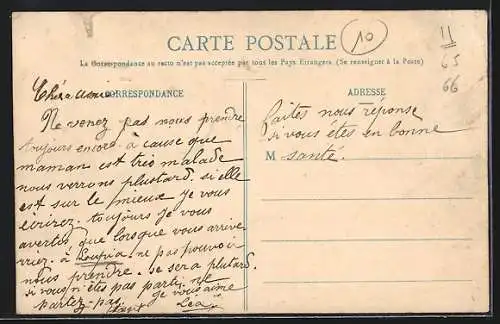 CARTE POSTALE
10
11
65
66
La Correspondance au recto n'est pas acceptée par tous les Pays Etrangers. (Se renseigner à la Poste)
Chère amie
CORRESPONDANCE
Ne venez pas nous prendre
toujours encore. à cause que
maman est trés malade
nous verrons plustard. si elle
est sur le mieux je vous
écrirez. toujours je vous
avertes que lorsque vous arrive
rriez. à Loupia ne pas pouvoir
nous prendre. se sera plutard.
si vous n'êtes pas parti ne
partez pas. je vous aime
Léa
ADRESSE
faites nous réponse
si vous etes en bonne
M santé.